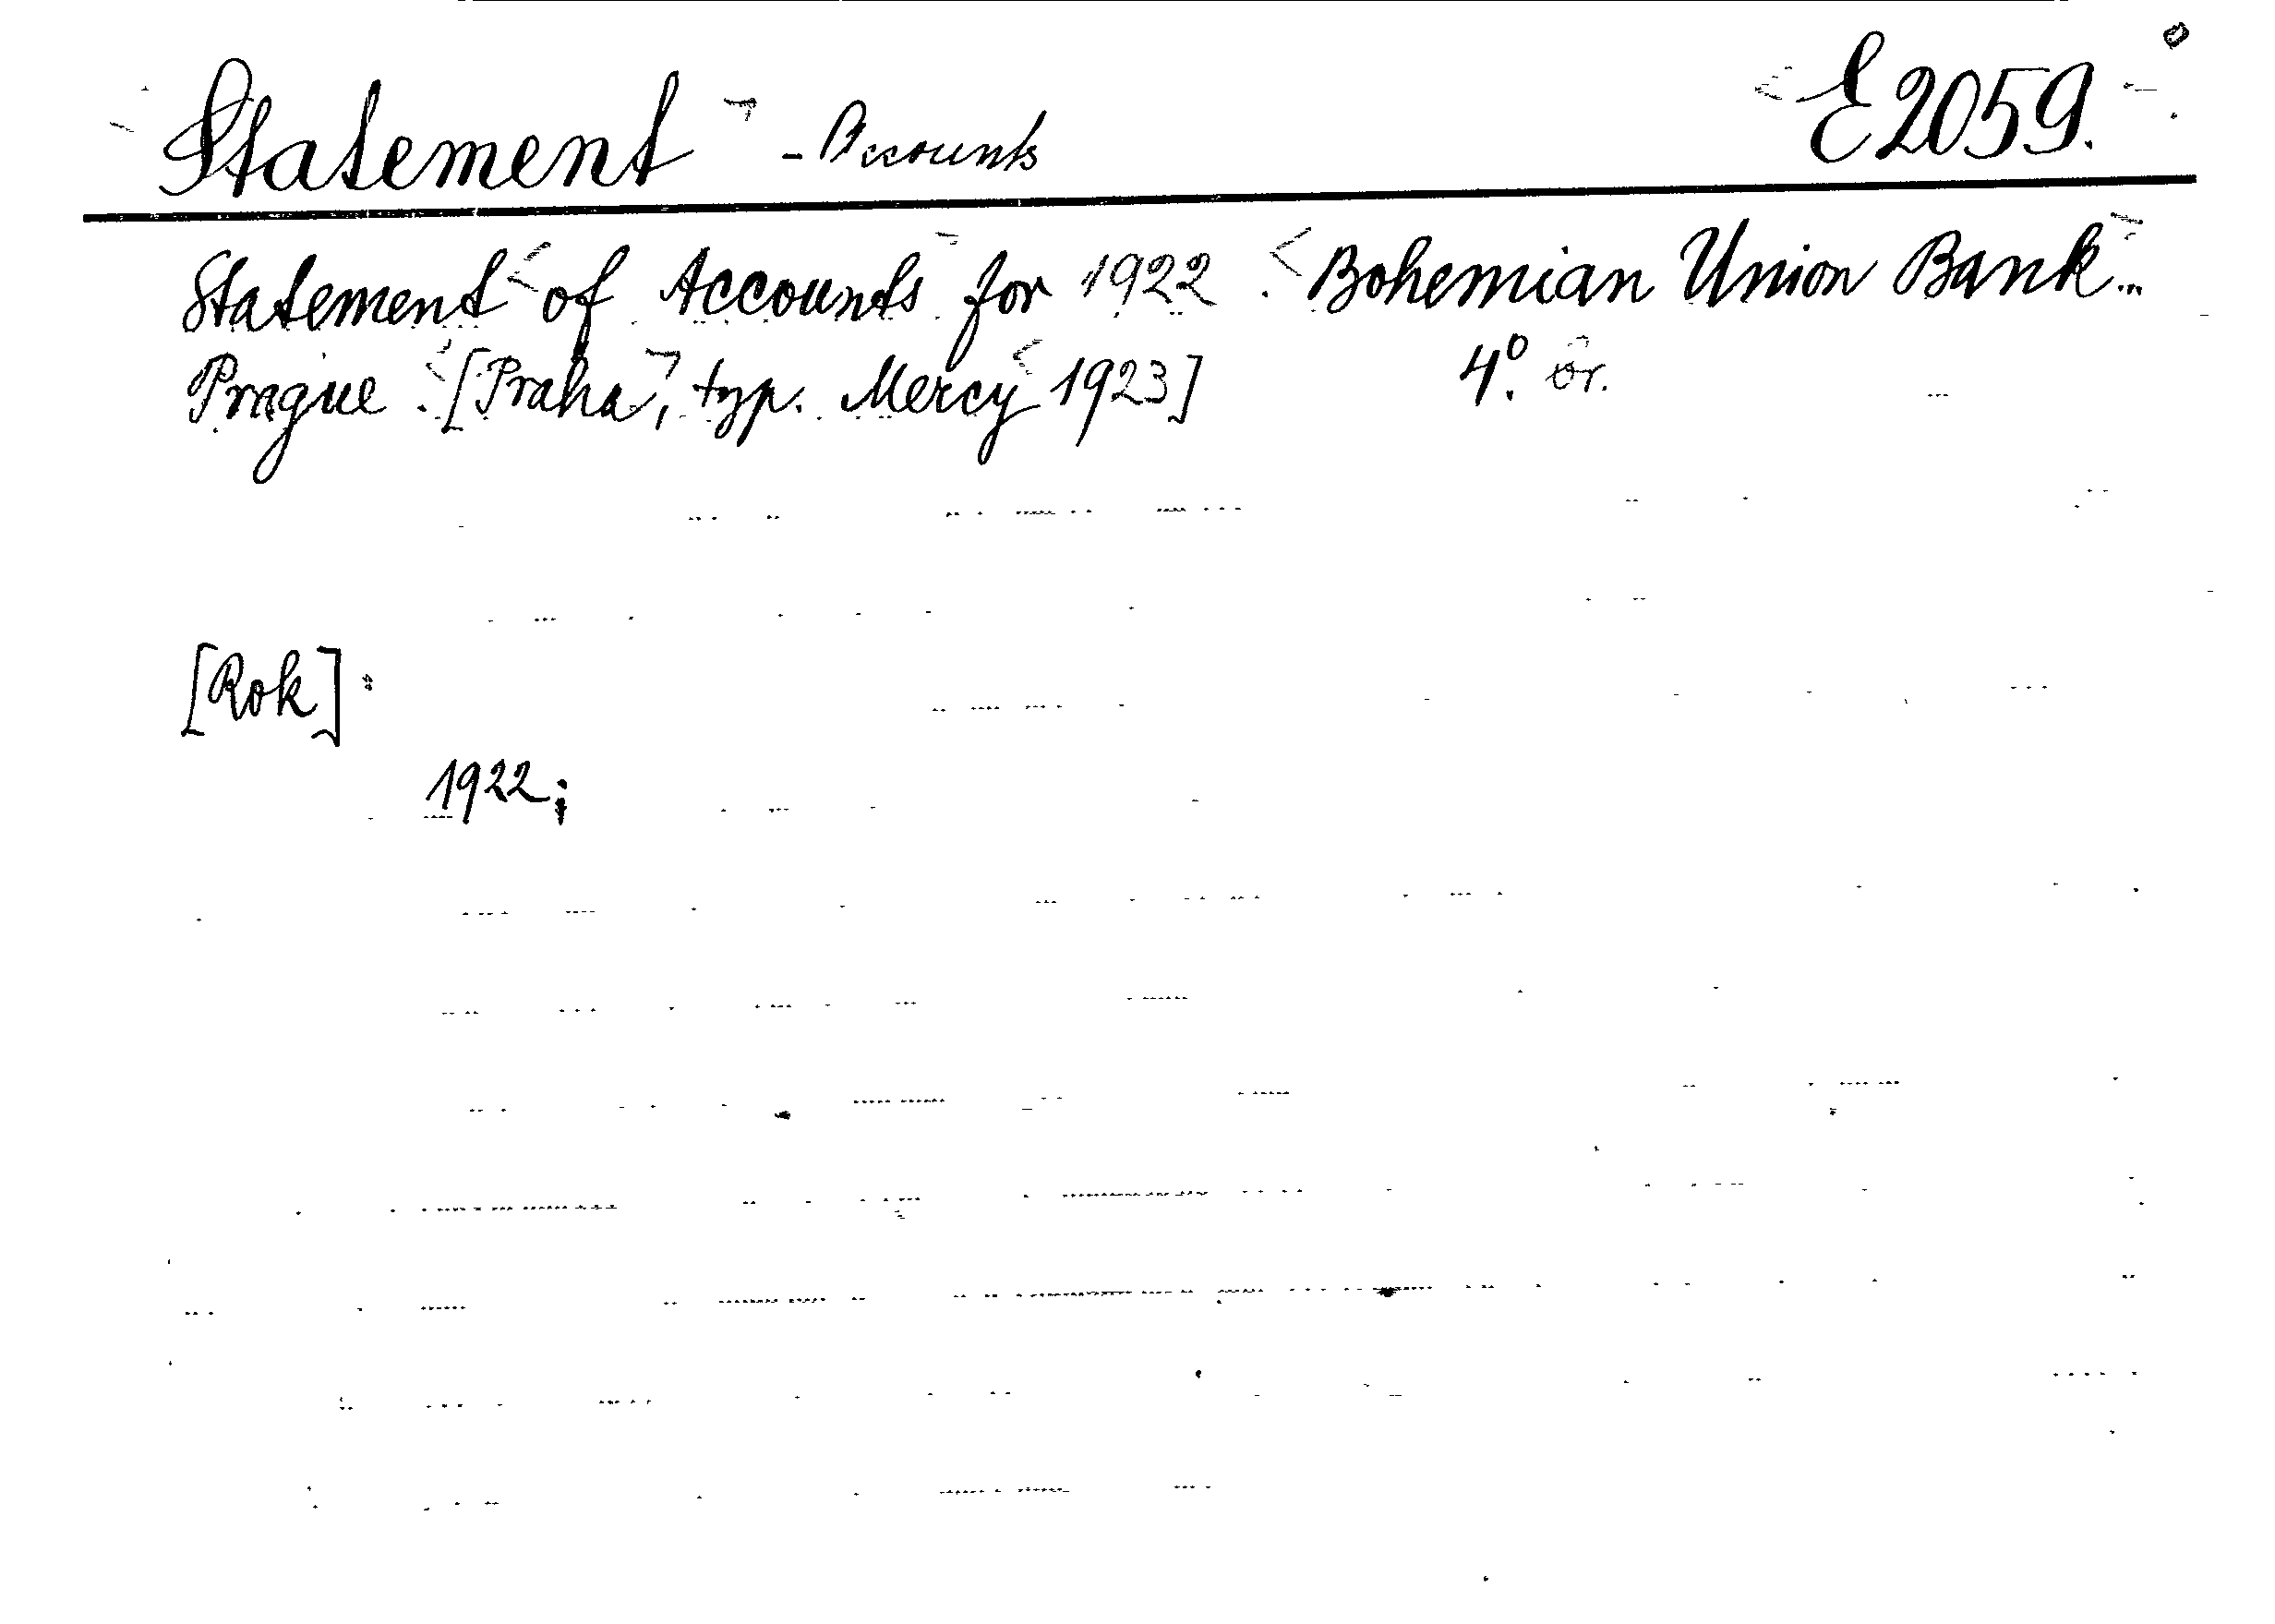 Statement - Accounts E 2059.
Statement of Accounts for 1922. Bohemian Union Bank...
Prague. [Praha, typ. Mercy 1923] 4°. or.
[Rok]:
1922;